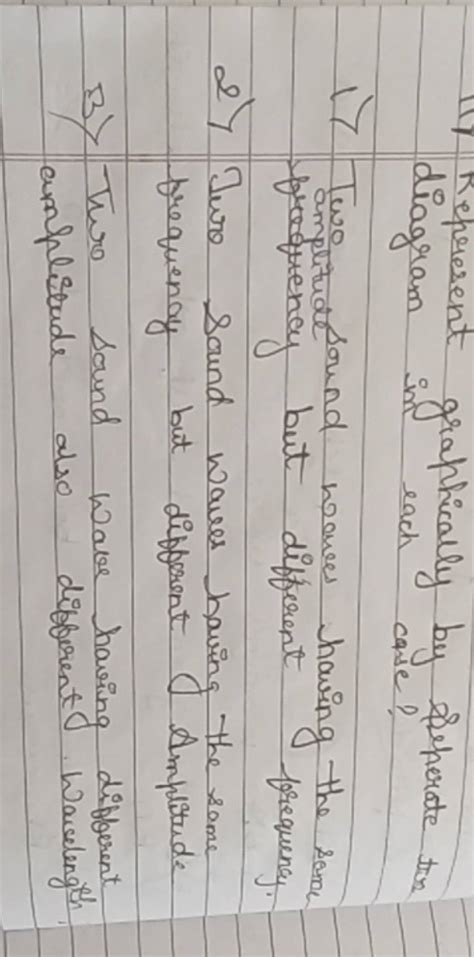 Represent graphically by Seperate two
diagram in each case?
1) Two sound waves having the same
amplitude
frequency but different frequency.
2) Two Sound waves having the same
frequency but different Amplitude
3) Two sound wave having different
amplitude also different wavelength.